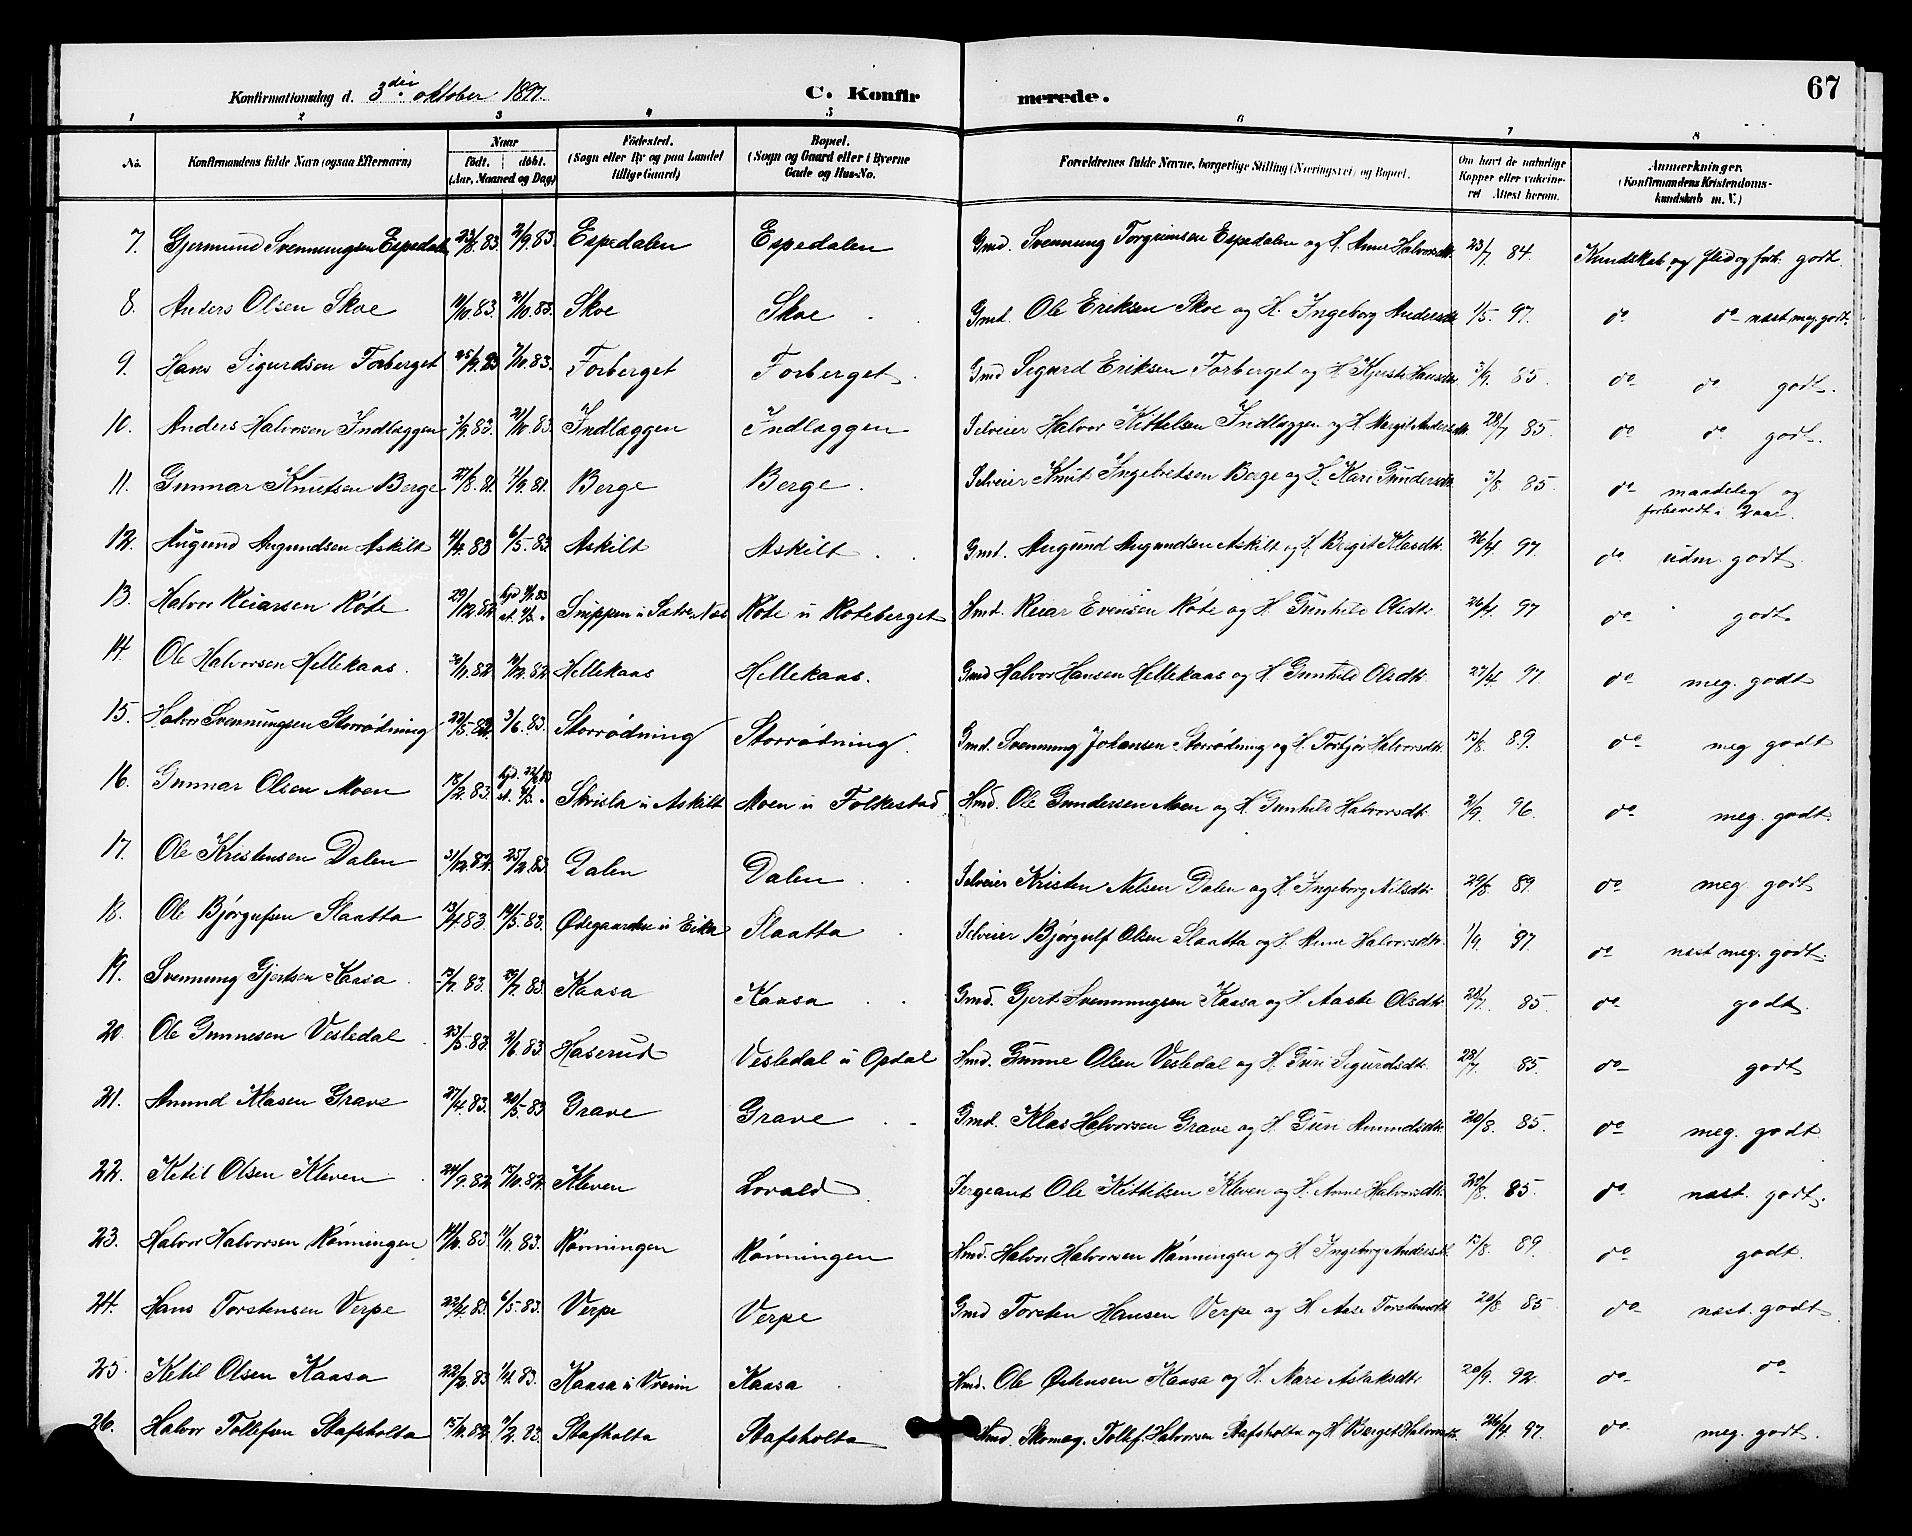 67
Konfirmationsdag d. 3die oktober 1897. C. Konfirmerede.
1 2 3 4 5 6 7 8
No. Konfirmandens fulde Navn (ogsaa Efternavn) Naar födt. döbt. (Aar, Maaned og Dag) Födested. (Sogn eller By og paa Landet tillige Gaard) Bopæl. (Sogn og Gaard eller i Byerne Gade og Hus-No. Forældrenes fulde Navne, borgerlige Stilling (Næringsvei) og Bopæl. Om havt de naturlige Kopper eller vakcineret Attest herom. Anmærkninger. (Konfirmandens Kristendomskundskab m. V.)
7. Gjermund Svenningsen Espedalen 23/8. 83. 2/9. 83. Espedalen Espedalen Gmd. Svennung Torgrimsen Espedalen og H. Anne Halvorsdtr. 23/7 84. Kundskab og flid og forh. godt.
8. Anders Olsen Skoe 11/10. 83. 21/10. 83. Skoe Skoe Gmd. Ole Eriksen Skoe og H. Ingeborg Andersdtr. 1/5. 97. do do næst meg. godt.
9. Hans Sigurdsen Forberget 25/9. 83 7/10. 83. Forberget Forberget. Gmd Sigurd Eriksen Forberget og H. Kjersti Hansdtr. 3/9. 85. do do godt.
10. Anders Halvorsen Indlæggen 3/9. 83. 21/10. 83. Indlæggen Indlæggen Selveier Halvor Kittelsen Indlæggen og H. Margit Andersdtr. 28/7 85. do do godt.
11. Gunnar Knutsen Berge 27/8. 81. 11/9. 81. Berge Berge. Selveier Knut Ingebretsen Berge og H. Kari Gundersdtr. 3/8. 85. do maadelig og forberedt i 2 aar.
12. Augund Augundsen Askilt 11/4. 83 6/5. 83. Askilt Askilt Gmd. Augund Augundsen Askilt og H. Bergit Klasdtr. 26/4 97. do udm. godt.
13. Halvor Reiarsen Røte 29/12. 82. Snippen u Røte u Roteberget Hmd. Reiar Evensen Røte og H. Gunhild Olsdtr. 26/4. 97 do godt.
14. Ole Halvorsen Hellekaas. 30/11. 82. 10/12. 82. Hellekaas Hellekaas. Gmd Halvor Hansen Hellekaas og H Gunhild Olsdtr. 27/4. 97. do meg. godt
15. Halvor Svennungsen Storrødning 22/5. 83. 3/6. 83. Storrødning Storrødning. Gmd. Svennung Johansen Storrødning og H. Torbjør Halvorsdtr. 13/8. 89. do meg godt
16. Gunnar Olsen Moen 18/2. 83. Skrisla u Askilt Moen u Folkestad Hmd. Ole Gundersen Moen og H. Gunhild Halvorsdtr. 2/9. 96. do meg. godt.
17. Ole Kristensen Dalen 31/12. 82. 25/2. 83. Dalen Dalen Selveier Kristen Nilsen Dalen og H. Ingeborg Nilsdtr. 29/8 89. do meg. godt
18. Ole Bjørgufsen Slaatta 13/4 83 14/5. 83. Ødegaarden u Eika Slaatta Selveier Bjørgulf Olsen Slaatta og H. Anne Halvorsdtr. 1/9. 97. do næst meg. godt.
19. Svennung Gjertsen Kaasa 13/7. 83. 29/7. 83. Kaasa Kaasa Gmd. Gjert Svennungsen Kaasa og H. Aaste Olsdtr. 28/7. 85. do godt.
20. Ole Gunnesen Vesledal 23/5. 83. 2/6. 83. Haserud Vesledal u Opdal Hmd. Gunne Olsen Vesledal og H. Guri Sigurdsdtr. 28/7. 85. do godt
21. Amund Klasen Grave 27/4. 83. 20/5. 83 Grave Grave Gmd. Klas Halvorsen Grave og H. Guri Amundsdtr. 20/8. 85. do meg. godt
22. Ketil Olsen Kleven 24/9. 82. 15/10. 82. Kleven Lovald Sergeant Ole Kittilsen Kleven og H. Anne Halvorsdtr. 20/8. 85. do næst. godt.
23. Halvor Halvorsen Rønningen 83. 83. Rønningen Rønningen Hmd. Halvor Halvorsen Rønningen og H. Ingeborg Andersdtr. 13/8. 89. do godt.
24. Hans Torstensen Verpe 22/4. 83. 6/5. 83. Verpe Verpe Gmd Torsten Hansen Verpe og H Aase Torstensdtr. 20/8 85 do næst. godt
25. Ketil Olsen Kaasa 22/2. 83 1/4. 83. Kaasa u Vreim Kaasa Hmd. Ole Østensen Kaasa og H. Mari Aslaksdtr. 20/9. 92. do do
26. Halvor Tollefsen Stafsholta 15/12. 82. 11/2. 83. Stafholta Stafsholta Hmd. Skomag. Tollef Halvorsen Stafsholta og H. Berget Halvorsdtr. 26/4 97. do meg. godt.